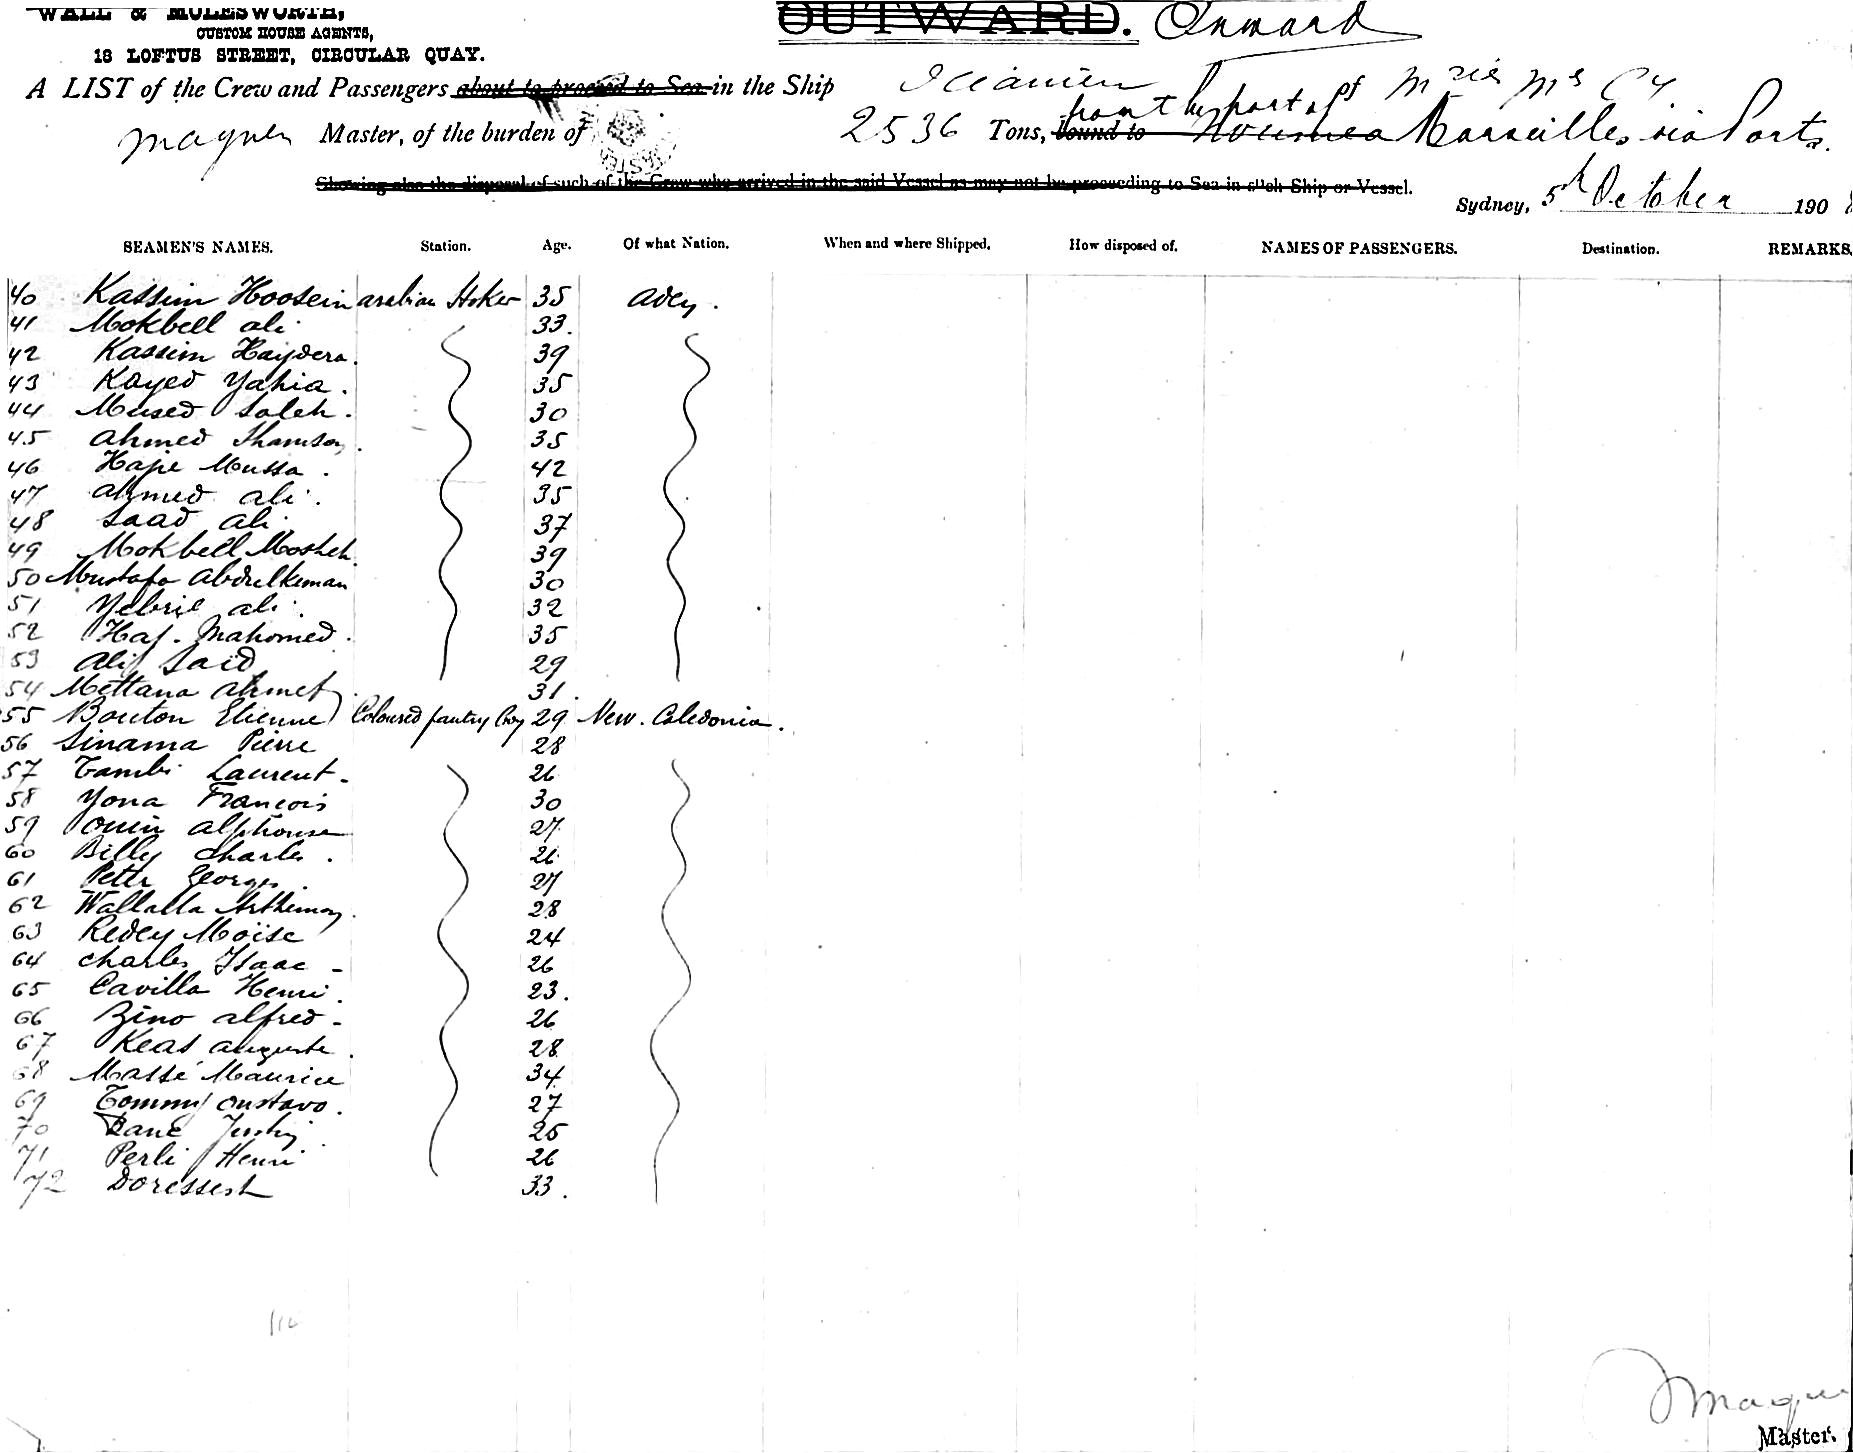 WALL & MOLESWORTH,
CUSTOM HOUSE AGENTS,
18 LOFTUS STREET, CIRCULAR QUAY.
OUTWARD. Inward
A LIST of the Crew and Passengers about to proceed to Sea in the Ship Oceanien of Mries Ms Cy
Master, of the burden of 2536 Tons, bound to Noumea Marseilles via Ports.
Showing also the disposal of such of the Crew who arrived in the said Vessel as may not be proceeding to Sea in such Ship or Vessel.
Sydney, 5th October 190
SEAMEN'S NAMES. Station. Age. Of what Nation. When and where Shipped. How disposed of. NAMES OF PASSENGERS. Destination. REMARKS
40 Kassim Hoosein arabian Stoker 35 Aden.
41 Mokbell ali 33.
42 Kassim Haydera. 39
43 Kayed Yahia. 35
44 Mused Saleh. 30
45 Ahmed 35
46 Haje Mussa. 42
47 Ahmed ali. 35
48 Saad ali 37
49 Mokbell Mosleh. 39
50 Mustafa Abdulkeman 30
51 Yebril ali. 32
52 Haj. Mahomed. 35
53 Ali Saïd 29
54 Mettana Ahmet 31.
55 Bouton Etienne Coloured pantry boy 29 New. Caledonia.
56 Sinama Pierre 28
57 Tambi Laurent. 26
58 Yona François 30
59 Ouin Alphonse 27
60 Billy Charles. 26
61 Peter Georges. 27
62 Wallalla 28
63 Redey Moïse 24
64 Charles Isaac - 26
65 Cavilla Henri. 23.
66 Zino Alfred - 26
67 Keas Auguste. 28
68 Massé Maurice 34
69 Tommy Gustavo. 27
70 Bane Justin 25
71 Perli Henri 26
72 33.
Master.